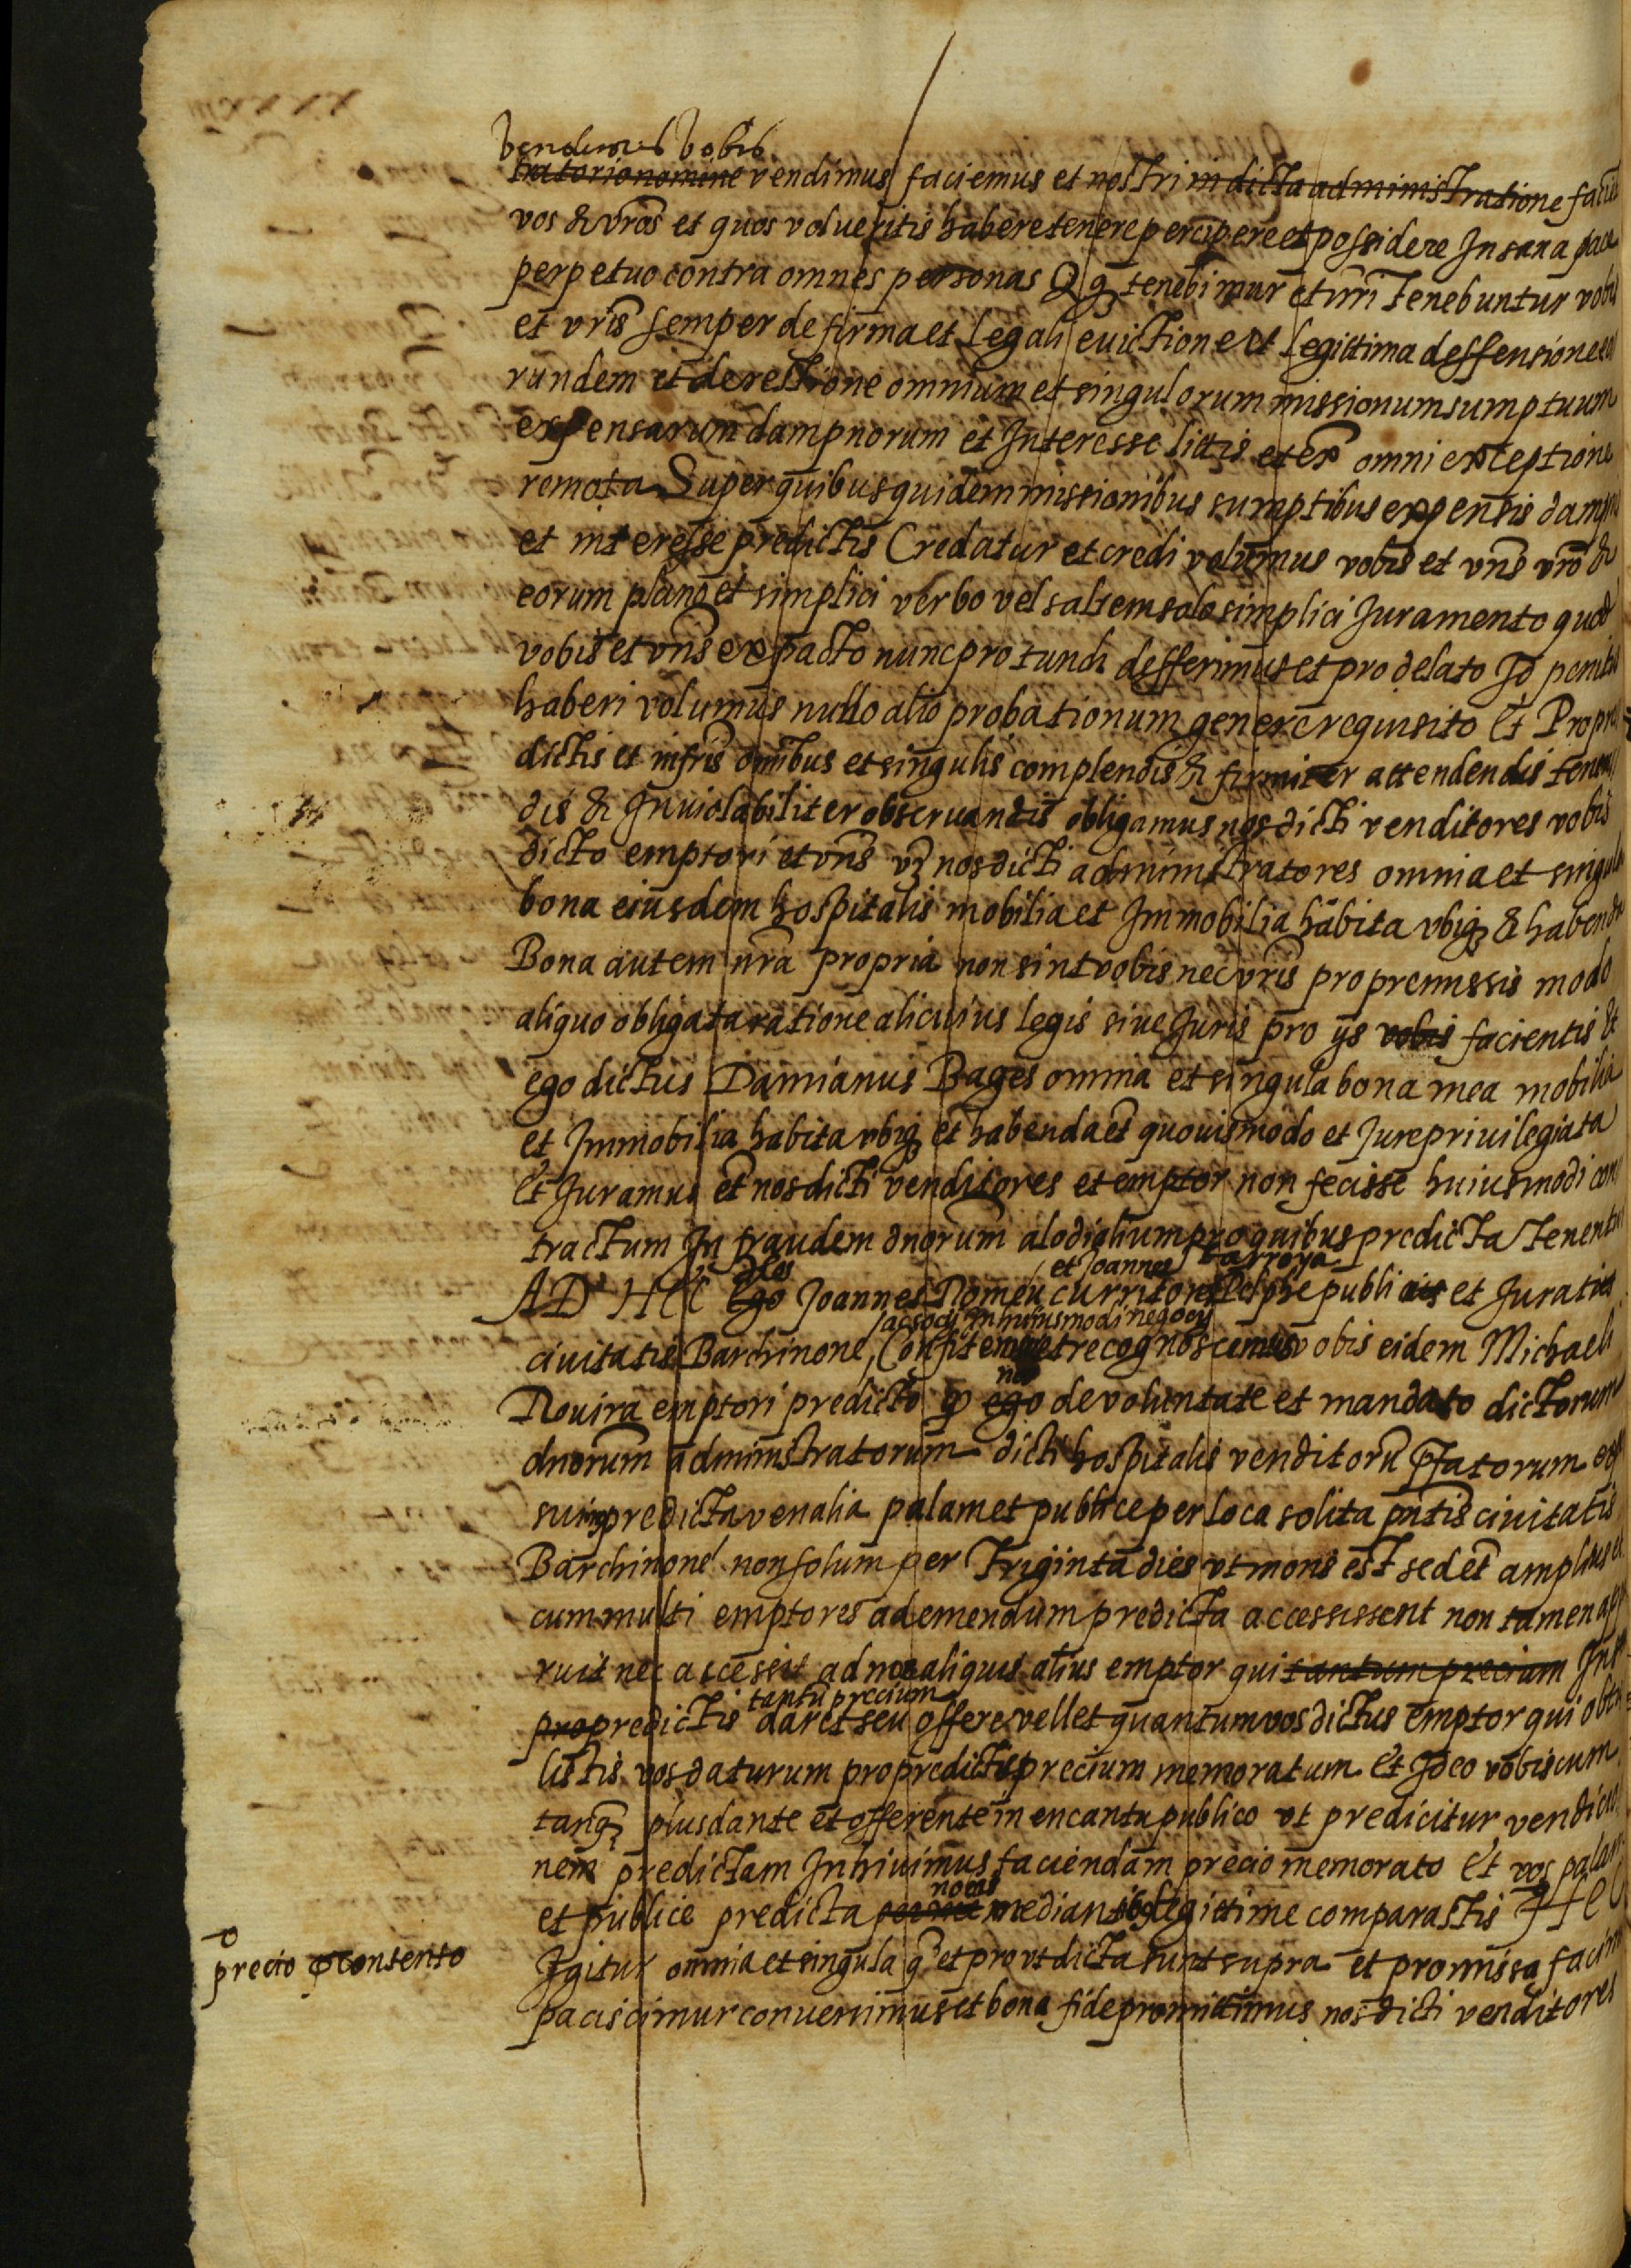 vendimus vobis
tratorio nomine vendimus faciemus et nostri in dicta administratione
vos & vros et quos volueritis habere tenere percipere et possidere In sana pace
perpetuo contra omnes personas Q q tenebimur et nri tenebuntur vobis
et vris semper de firma et legali evictione et legittima deffensione eo
rundem et de restione omnium et singulorum missionum sumptuum
expensarum dampnorum et Interesse littis et ex omni exceptione
remota Super quibus quidem missionibus sumptibus expensis
et interesse predictis Credatur et credi volumus vobis et vris vro &
eorum plano et simplici verbo vel saltem solo simplici Juramento quod
vobis et vris ex pacto nunc pro tunch defferimus et pro delato Id penitus
haberi volumus nullo alio probationum genere requisito Et Pro pre
dictis et infris omibus et singulis complendis & firmiter attendendis tenen
dis & Inviolabiliter observandis obligamus nos dicti venditores vobis
dicto emptori et vris vz nos dicti administratores omnia et singula
bona eiusdem hospitalis mobilia et Immobilia habita vbiq & habenda
Bona autem nra propria non sint vobis nec vris pro premissis modo
aliquo obligata ratione alicuius legis sive Juris pro ijs vobis facientis Et
ego dictus Damianus Bages omnia et singula bona mea mobilia
et Immobilia habita vbiq et habenda et quovismodo et Jure privilegiata
Et Juramus et nos dicti venditores et emptor non fecisse huiusmodi con
tractum In fraudem dnorum alodialium pro quibus predicta tenentur
et Joannes Tarroya
AD HEC Ego Joannes Romeu curritores publi et Jurati
ac socij in huiusmodi negocij
civitatis Barchinone, Confitemur et recognoscemus vobis eidem Michaeli
nos
Rovira emptori predicto q ego de voluntate et mandato dictorum
dnorum administratorum dicti hospitalis venditoru pfatorum
predicta venalia palam et publice per loca solita pntis civitatis
Barchinone non solum per Triginta dies vt moris est sed et amplius et
cum multi emptores ad emendum predicta accessissent non tamen
ruit nec accessit ad nos aliquis alius emptor qui tantum precium
tantu precium
pro predictis daret seu offere vellet quantum vos dictus emptor qui obtu
listis vos daturum pro predictis precium memoratum Et Ideo vobiscum
tanq plus dante et offerente in encantu publico vt predicitur vendicio
nem predictam Inhivimus faciendam precio memorato Et vos palam
nobis
et publice predicta per me mediantibus legittime comparastis HEC
Igitur omnia et singula q et pro vt dicta sunt supra et promissa
paciscimur convenimus et bona fide promittimus nos dicti venditores
precio contento